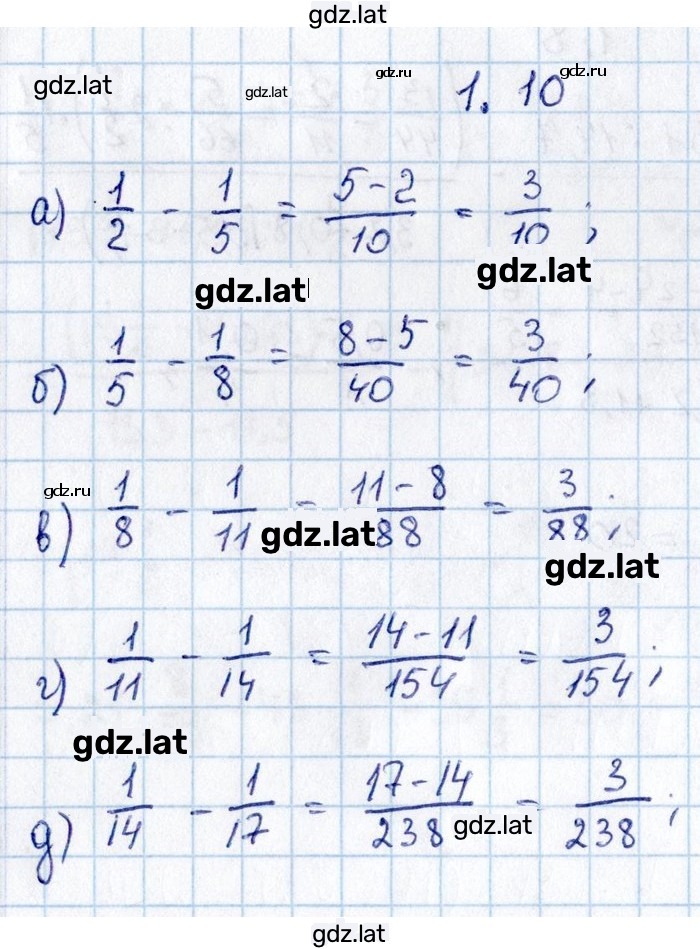 gdz.lat
gdz.lat gdz.lat gdz.ru 1. 10 gdz.ru
а) 1/2 - 1/5 = 5-2/10 = 3/10 ;
gdz.lat gdz.lat
б) 1/5 - 1/8 = 8-5/40 = 3/40 ;
gdz.ru
в) 1/8 - 1/11 = 11-8/88 = 3/88 ;
gdz.lat gdz.lat
г) 1/11 - 1/14 = 14-11/154 = 3/154 ;
gdz.lat
д) 1/14 - 1/17 = 17-14/238 = 3/238 ;
gdz.lat
gdz.lat